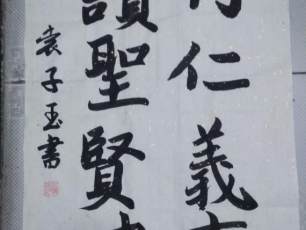 仁義
讀聖賢
袁子玉書